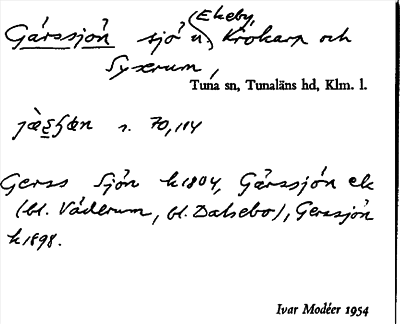 Gårssjön sjö u. (Ekeby, Krokarp och
Syserum,
Tuna sn, Tunaläns hd, Klm. l.
s. 70,184
Gerss Sjön k 1804, Gårssjön ek
(bl. Väderum, bl. Dalsebo), Gerssjön
k 1898.
Ivar Modéer 1954